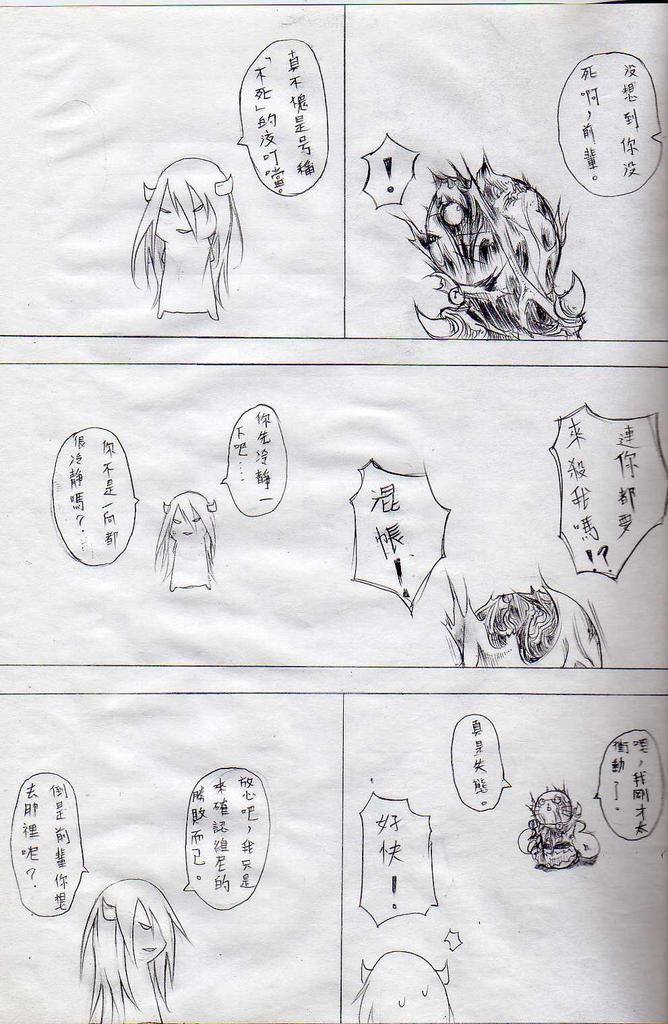 沒想到你沒
死啊，前輩。
！
真不愧是号稱
「不死」的液叮噹。
連你都要
來殺我嗎！？
混
帳！
你先冷靜一
下吧……
你不是一向都
很冷靜嗎？
嗯，我剛才太
衝動了。
真是失態。
好
快！
放心吧，我只是
來確認維尼的
勝敗而已。
倒是前輩你想
去那裡呢？